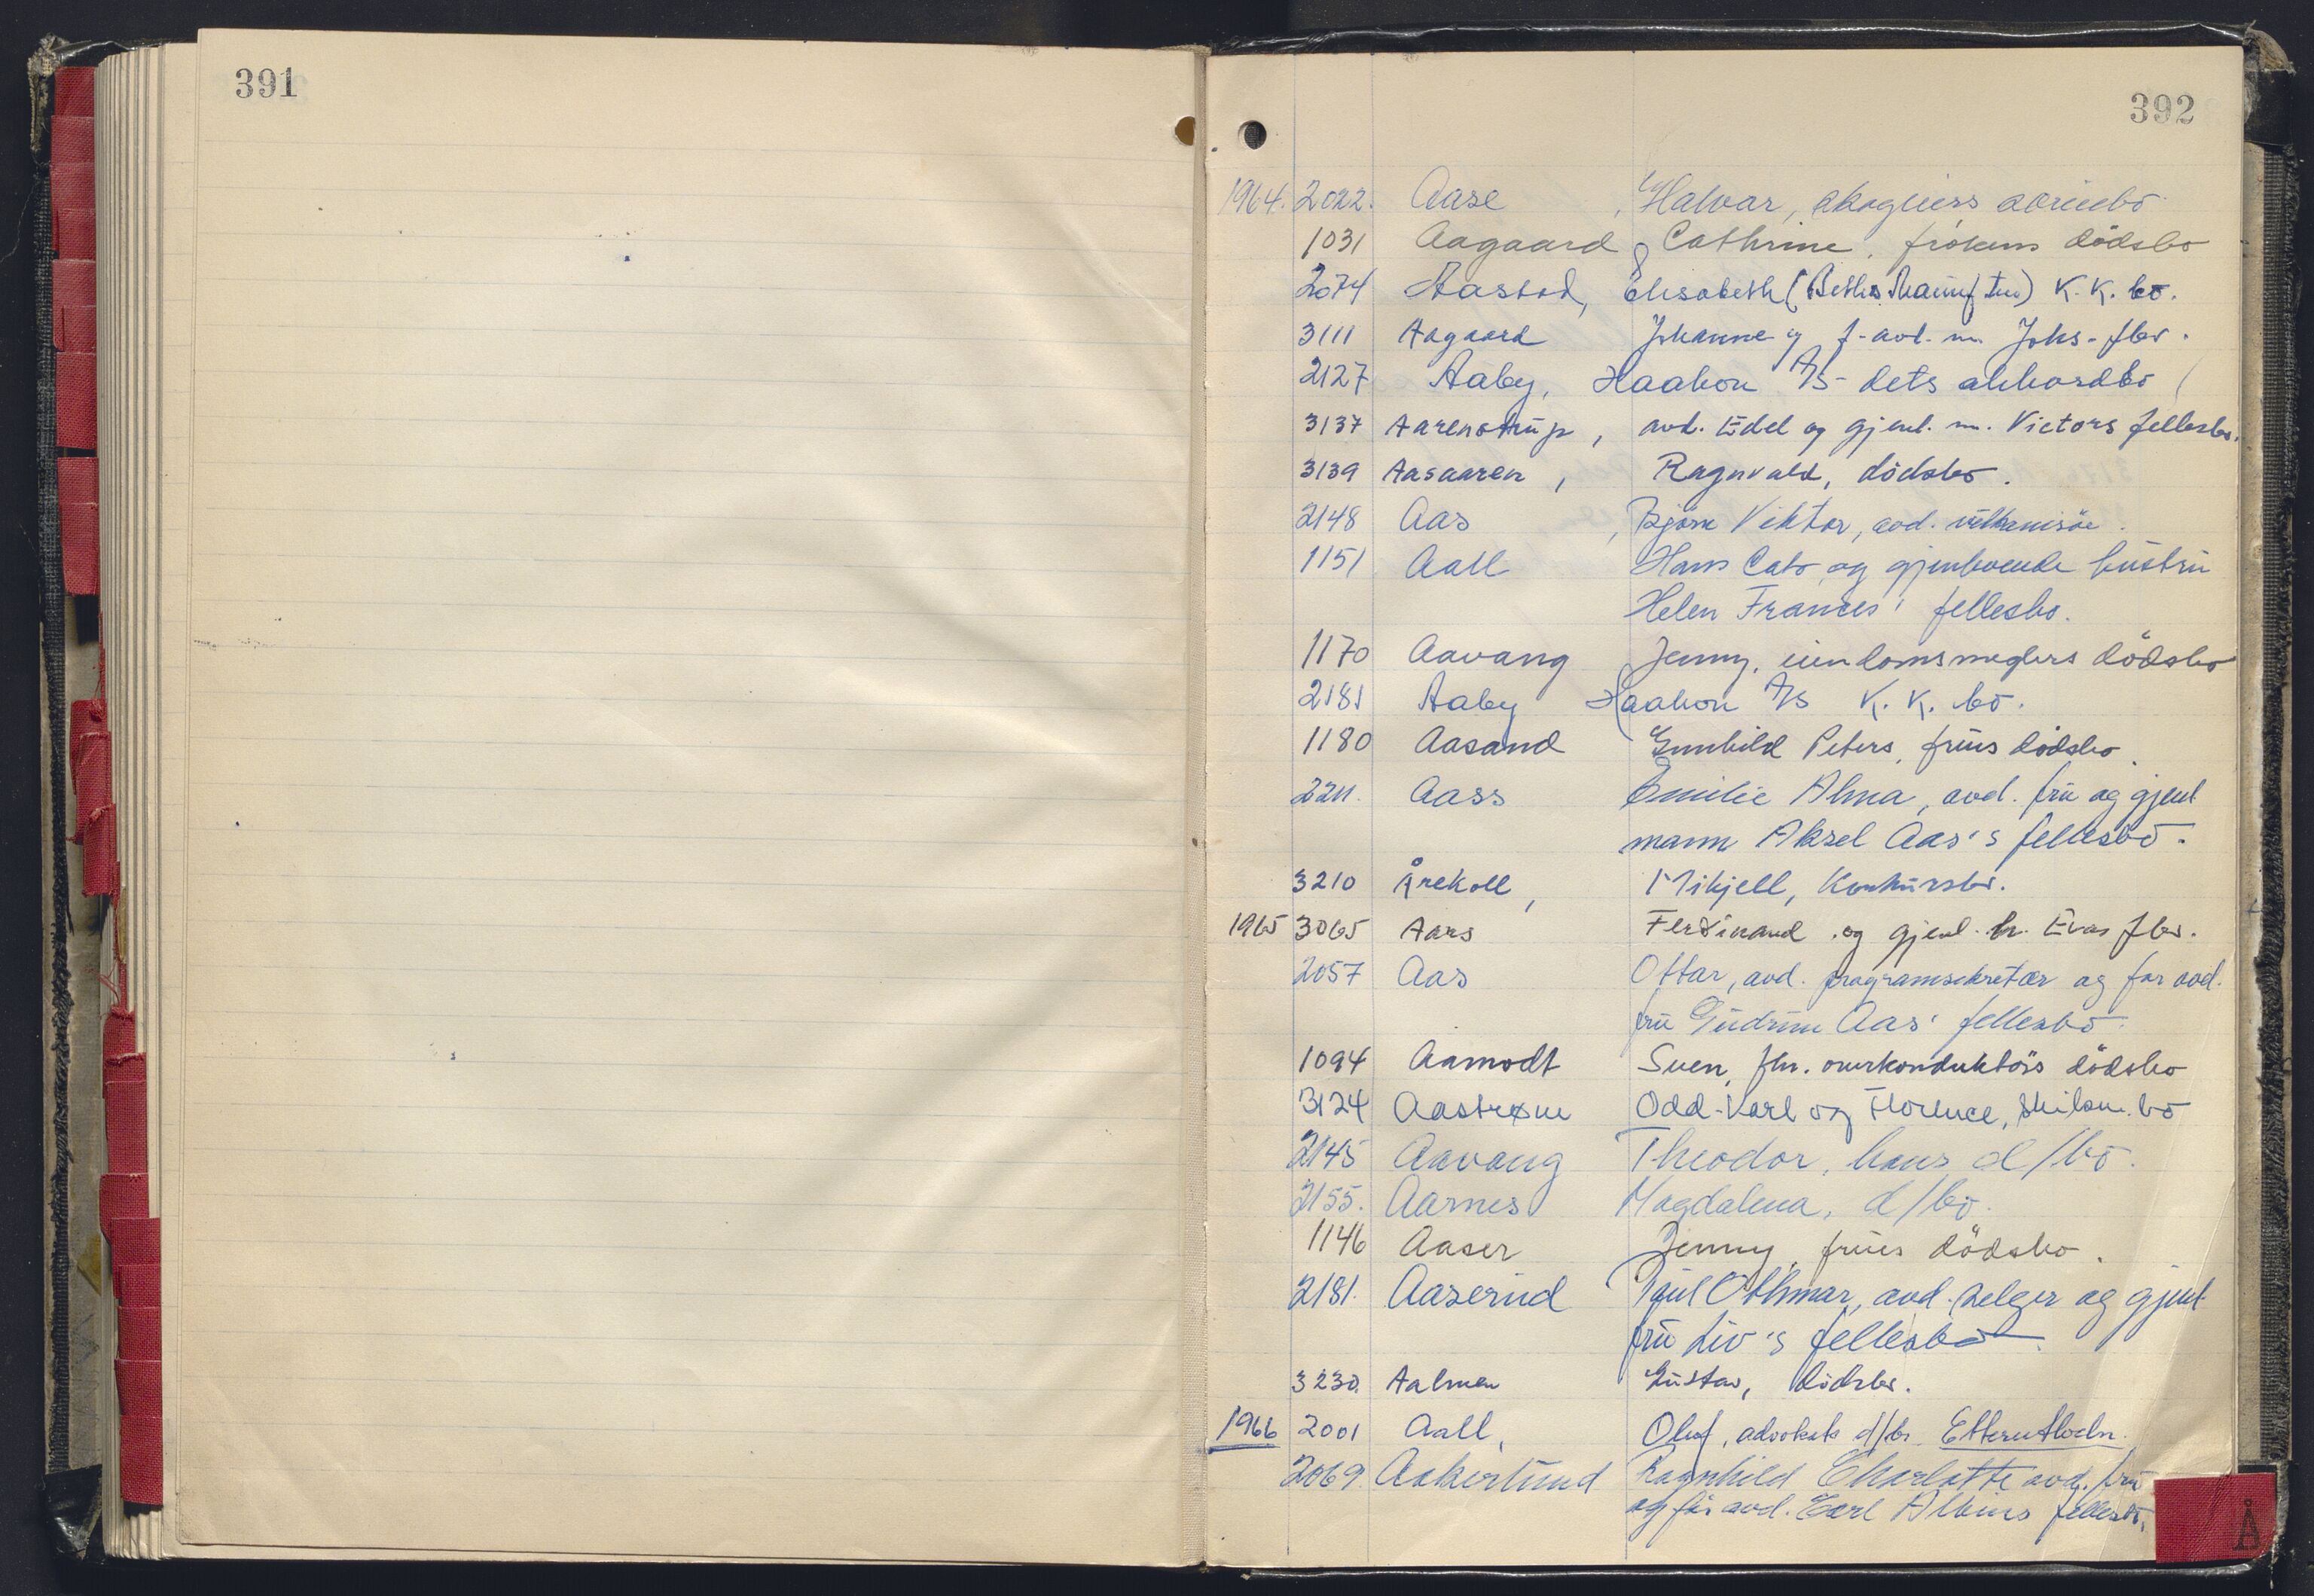 391
392
1964. 2022. Aase, Halvar,
1031 Aagaard, Cathrine, frökens dödsbo
2074 Aastad, Elisabeth K. K. bo.
3111 Aagaard Johanne og f-avd. m. Johs. fbo.
2127 Aaby, Haakon A/S dets akkordbo
3137 Aarenstrup, avd. Edel og gjenl. m. Victors fellesbo.
3139 Aasaaren, Ragnvald, dödsbo.
2148 Aas, Björn Viktor, avd.
1151 Aall Hans Cato og gjenboende hustru
Helen Frances' fellesbo.
1170 Aavang Jenny, eiendomsmeglers dödsbo
2181 Aaby Haakon A/S K. K. bo.
1180 Aasand Gunhild Peters, frus dödsbo.
2211. Aass Emilie Alma, avd. fru og gjenl
mann Aksel Aas's fellesbo.
3210 Årekoll, Mikjell, Konkursbo.
1965 3065 Aars Ferdinand og gjenl. h. Evas fbo.
2057 Aas Ottar, avd. programsekretær og før avd.
fru Gudrun Aas' fellesbo.
1094 Aamodt Sven, fhv. overkonduktörs dödsbo
3124 Aastrøm Odd-Karl og Florence, skilsm. bo
2145 Aavang Theodor, hans d/bo.
2155. Aarnes Magdalena, d/bo.
1146 Aaser Jenny, frues dödsbo.
2181. Aaserud Paul Othmar, avd. selger og gjenl
fru Liv's fellesbo.
3230. Aalmen Gustav, dödsbo.
1966 2001 Aall, Oluf, advokats d/bo
2069. Aakerlund Ragnhild Charlotte avd. fru
og før avd. Carl Albins fellesbo.
Å